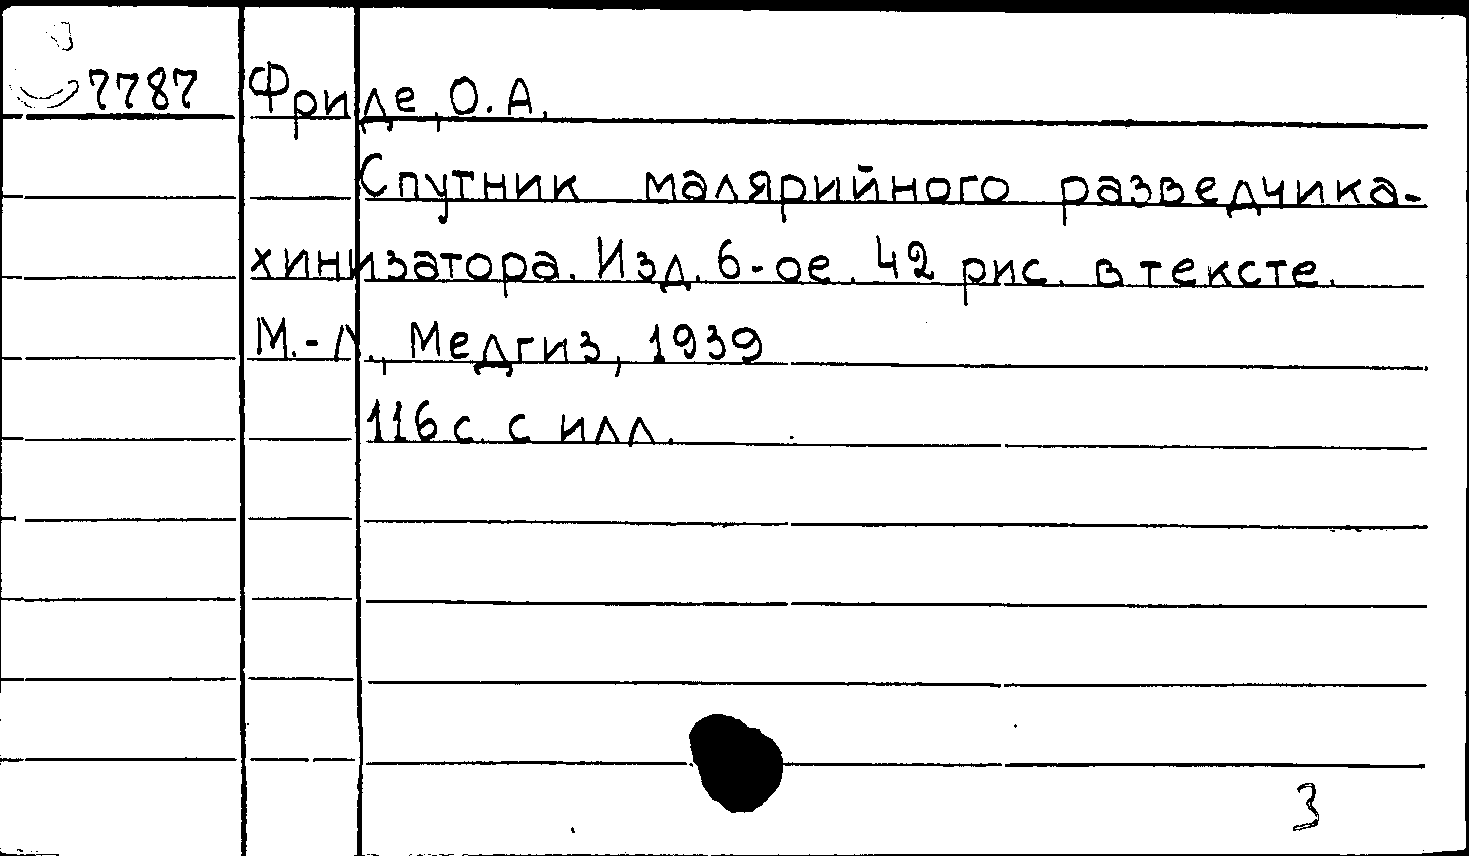 7787 Фриде, О. А.
Спутник малярийного разведчика-
хинизатора. Изд. 6-ое. 42 рис. в тексте.
М.-Л., Медгиз, 1939
116 с. с илл.
3